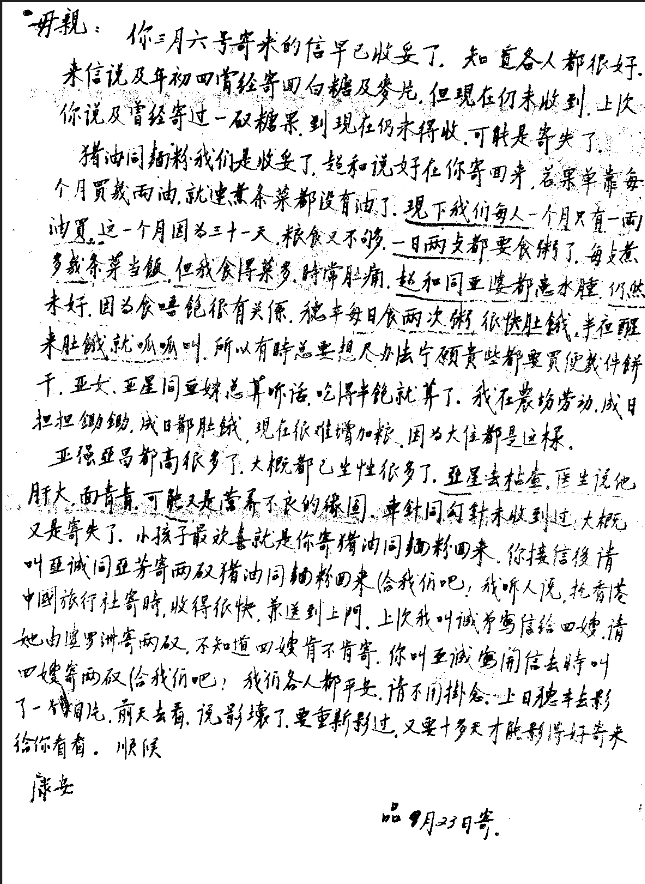 毋親：你三月六号寄来的信早已收妥了．知道各人都很好．
来信说及年初四曾经寄回白糖及麥片．但现在仍未收到．上次
你说及曾经寄过一砇糖果．到现在仍未得收．可能是寄失了．
猪油同麵粉．我们是收妥了．超和说好在你寄回来．若果单靠每
个月買幾両油．就連煮条菜都没有油了．现下我们每人一个月只有一両
油買．这一个月因为三十一天．粮食又不够．一日两歺都要食粥了．每歺煮
多幾条芽当飯．但我食得菜多．時常肚痛．超和同亚婆都患水腫．仍然
未好．因为食唔飽很有关係．穗丰每日食两次粥．很快肚餓．半夜醒
来肚餓．就呱呱叫．所以有時总要想尽办法宁願貴些都要買便幾件餅
干．亚女．亚星同亚妹总算听话．吃得半飽就算了．我在農場劳动．成日
担担锄锄．成日都肚餓．现在很难增加粮．因为大伍都是这樣．
亚强亚昌都高很多了．大概都已生性很多了．亚星去检查．医生说他
肝大．面青青．可能又是营养不良的缘因．車針同勾針未收到过．大概
又是寄失了．小孩子最欢喜就是你寄猪油同麵粉回来．你接信後請
叫亚诚同亚芳寄两砇猪油同麵粉回来给我们吧！我听人说．托香港
中國旅行社寄時．收得很快．兼送到上門．上次我叫诚芳寫信给四嫂．请
她由婆罗洲寄两砇．不知道四嫂肯不肯寄．你叫亚诚寫開信去時叫
四嫂寄两砇给我们吧！我们各人都平安．请不用掛念．上日穗丰去影
了一張相片．前天去看．说影壞了．要重新影过．又要十多天才能影得好寄来
给你看看．順候
康安
品 9月23日寄．